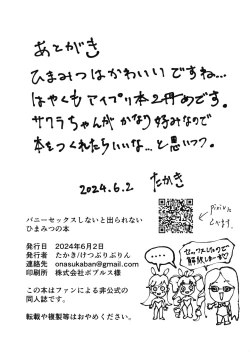 あとがき
ひまみつはかわいいですね…
はやくもアイプリ本2冊めです。
サクラちゃんがかなり好みなので
本をつくれたらいいな…と思いつつ。
2024.6.2 たかき
pixiv
バニーセックスしないと出られない
ひまみつの本
発行日 2024年6月2日
発行者 たかき/けつぷりぷりん
連絡先 onasukaban@gmail.com
印刷所 株式会社ポプルス様
この本はファンによる非公式の
同人誌です。
転載や複製等はおやめください。
セックスしたので